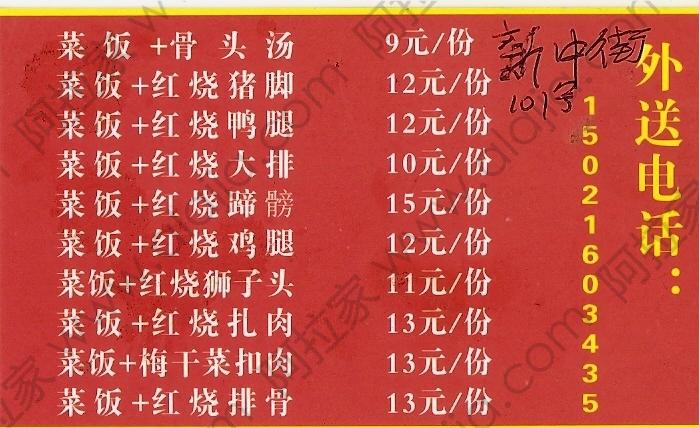 菜饭+骨头汤 9元/份
菜饭+红烧猪脚 12元/份
菜饭+红烧鸭腿 12元/份
菜饭+红烧大排 10元/份
菜饭+红烧蹄髈 15元/份
菜饭+红烧鸡腿 12元/份
菜饭+红烧狮子头 11元/份
菜饭+红烧扎肉 13元/份
菜饭+梅干菜扣肉 13元/份
菜饭+红烧排骨 13元/份
新中街
101号
外送电话：
15021603435
阿拉家 www.alajia.com